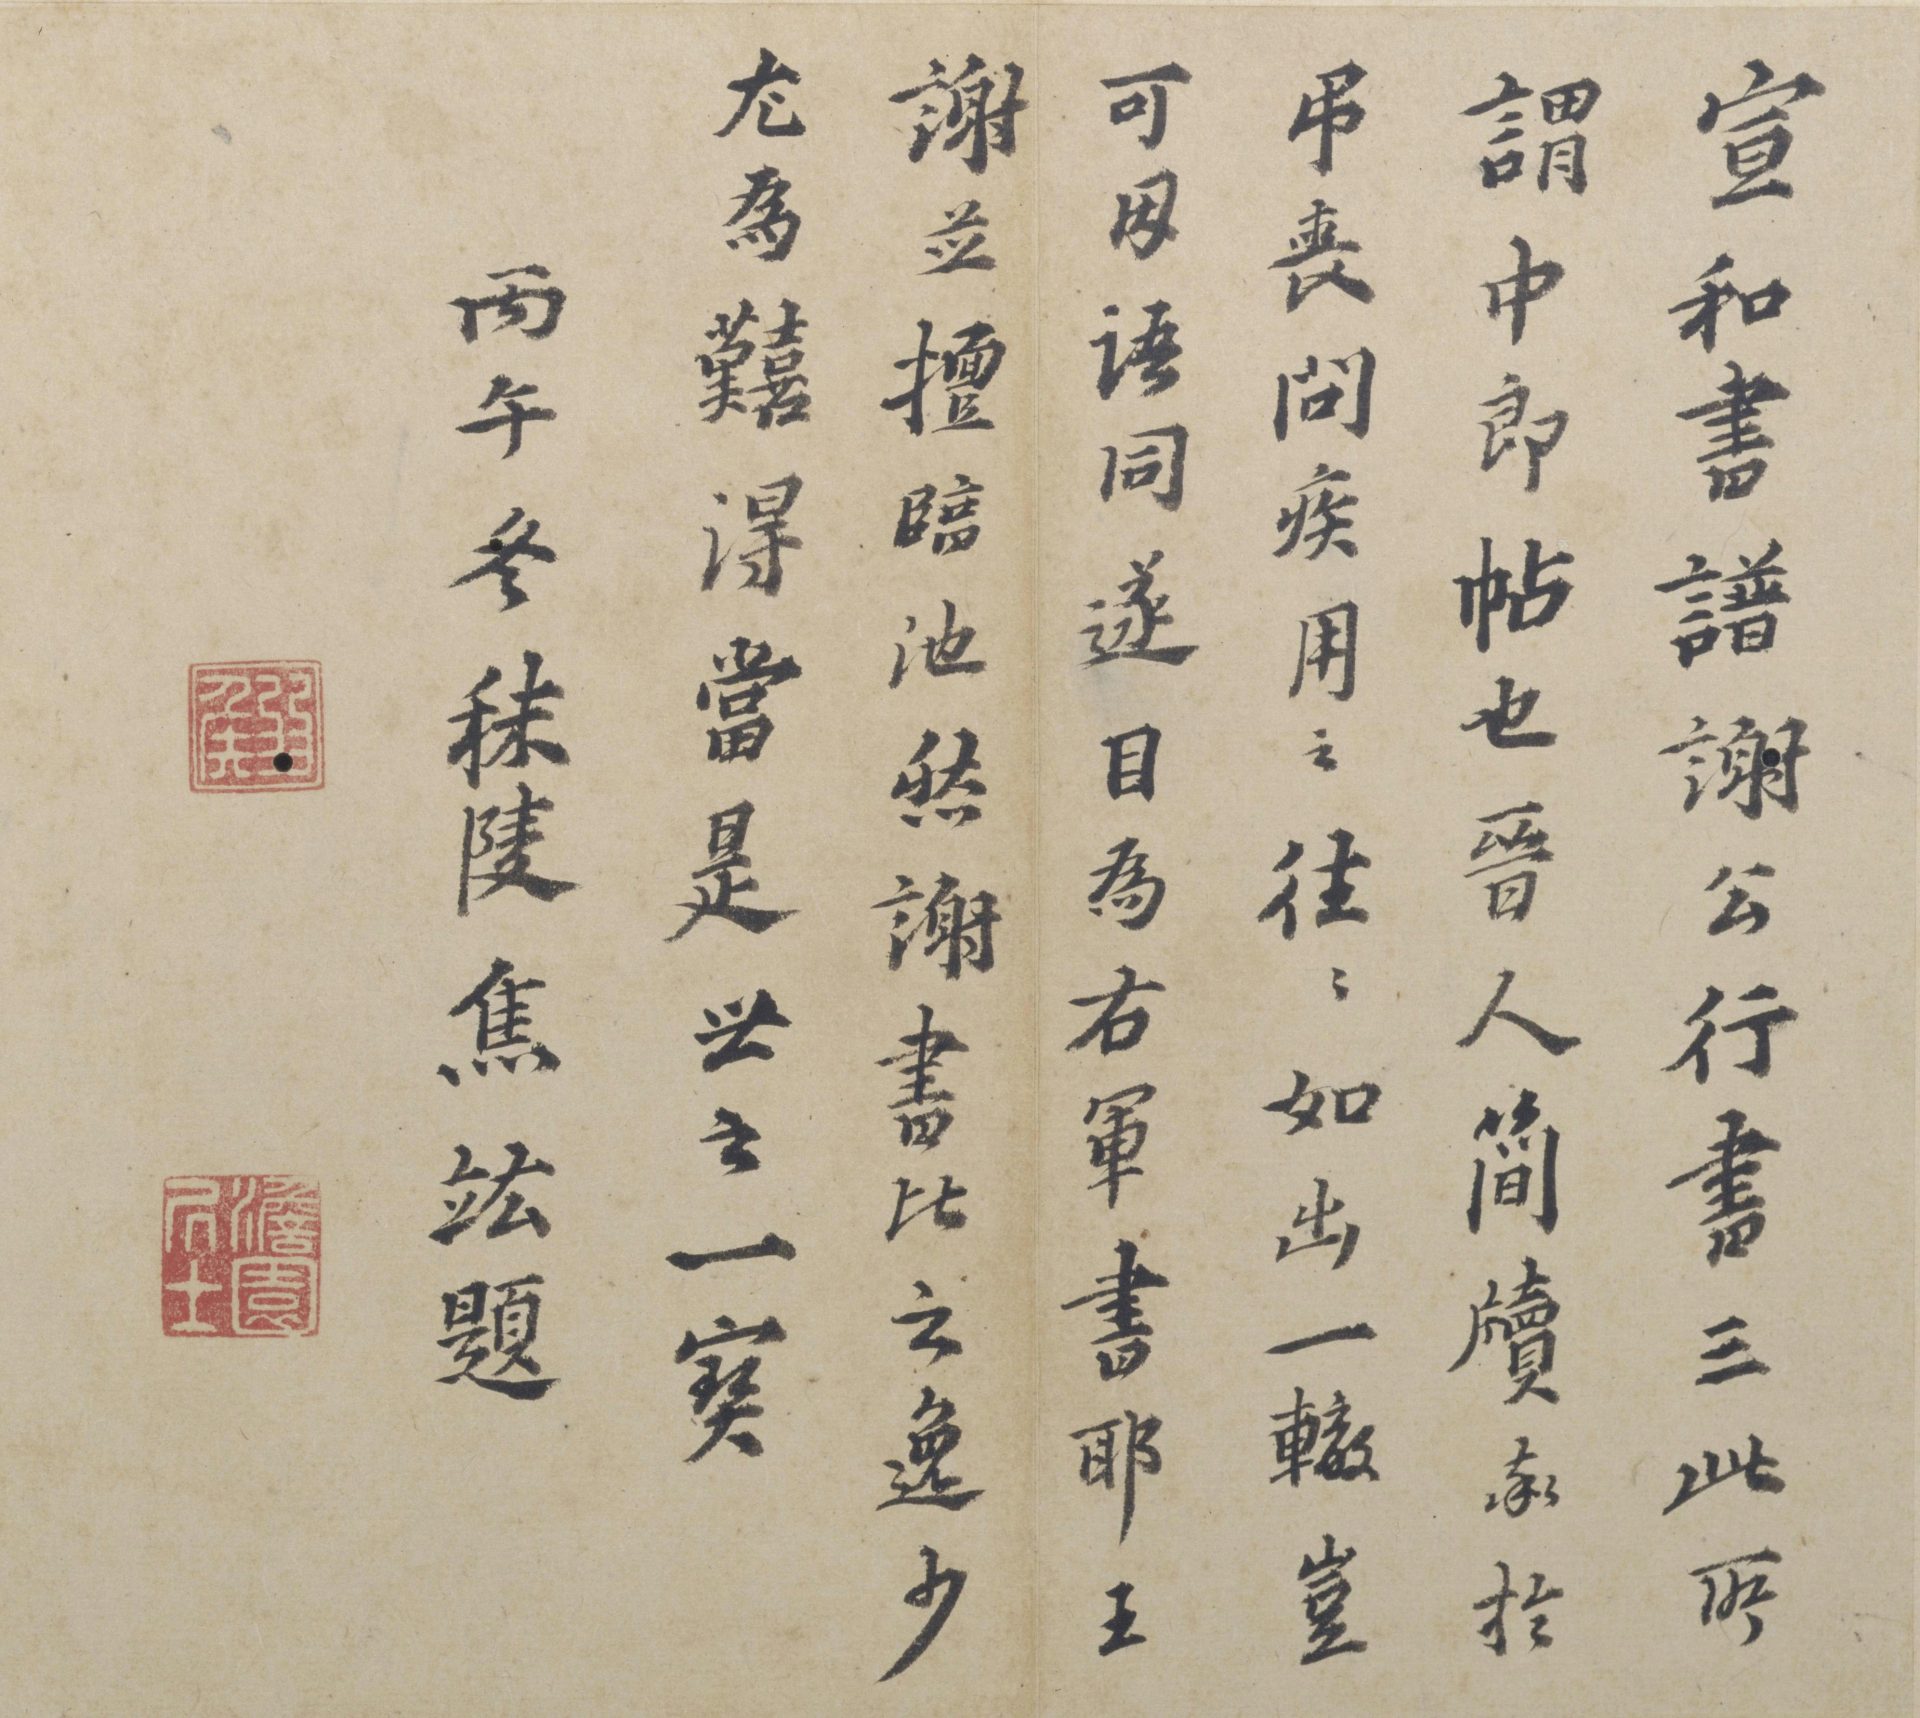 宣和書譜謝公行書三此所
謂中郎帖也晉人簡牘於
吊喪問疾用之往〻如出一轍豈
可因語同遂目為右軍書耶王
謝並擅臨池然謝書比之逸少
尤為難得當是世之一寶
丙午冬秣陵焦竑題
弱侯
澹園居士